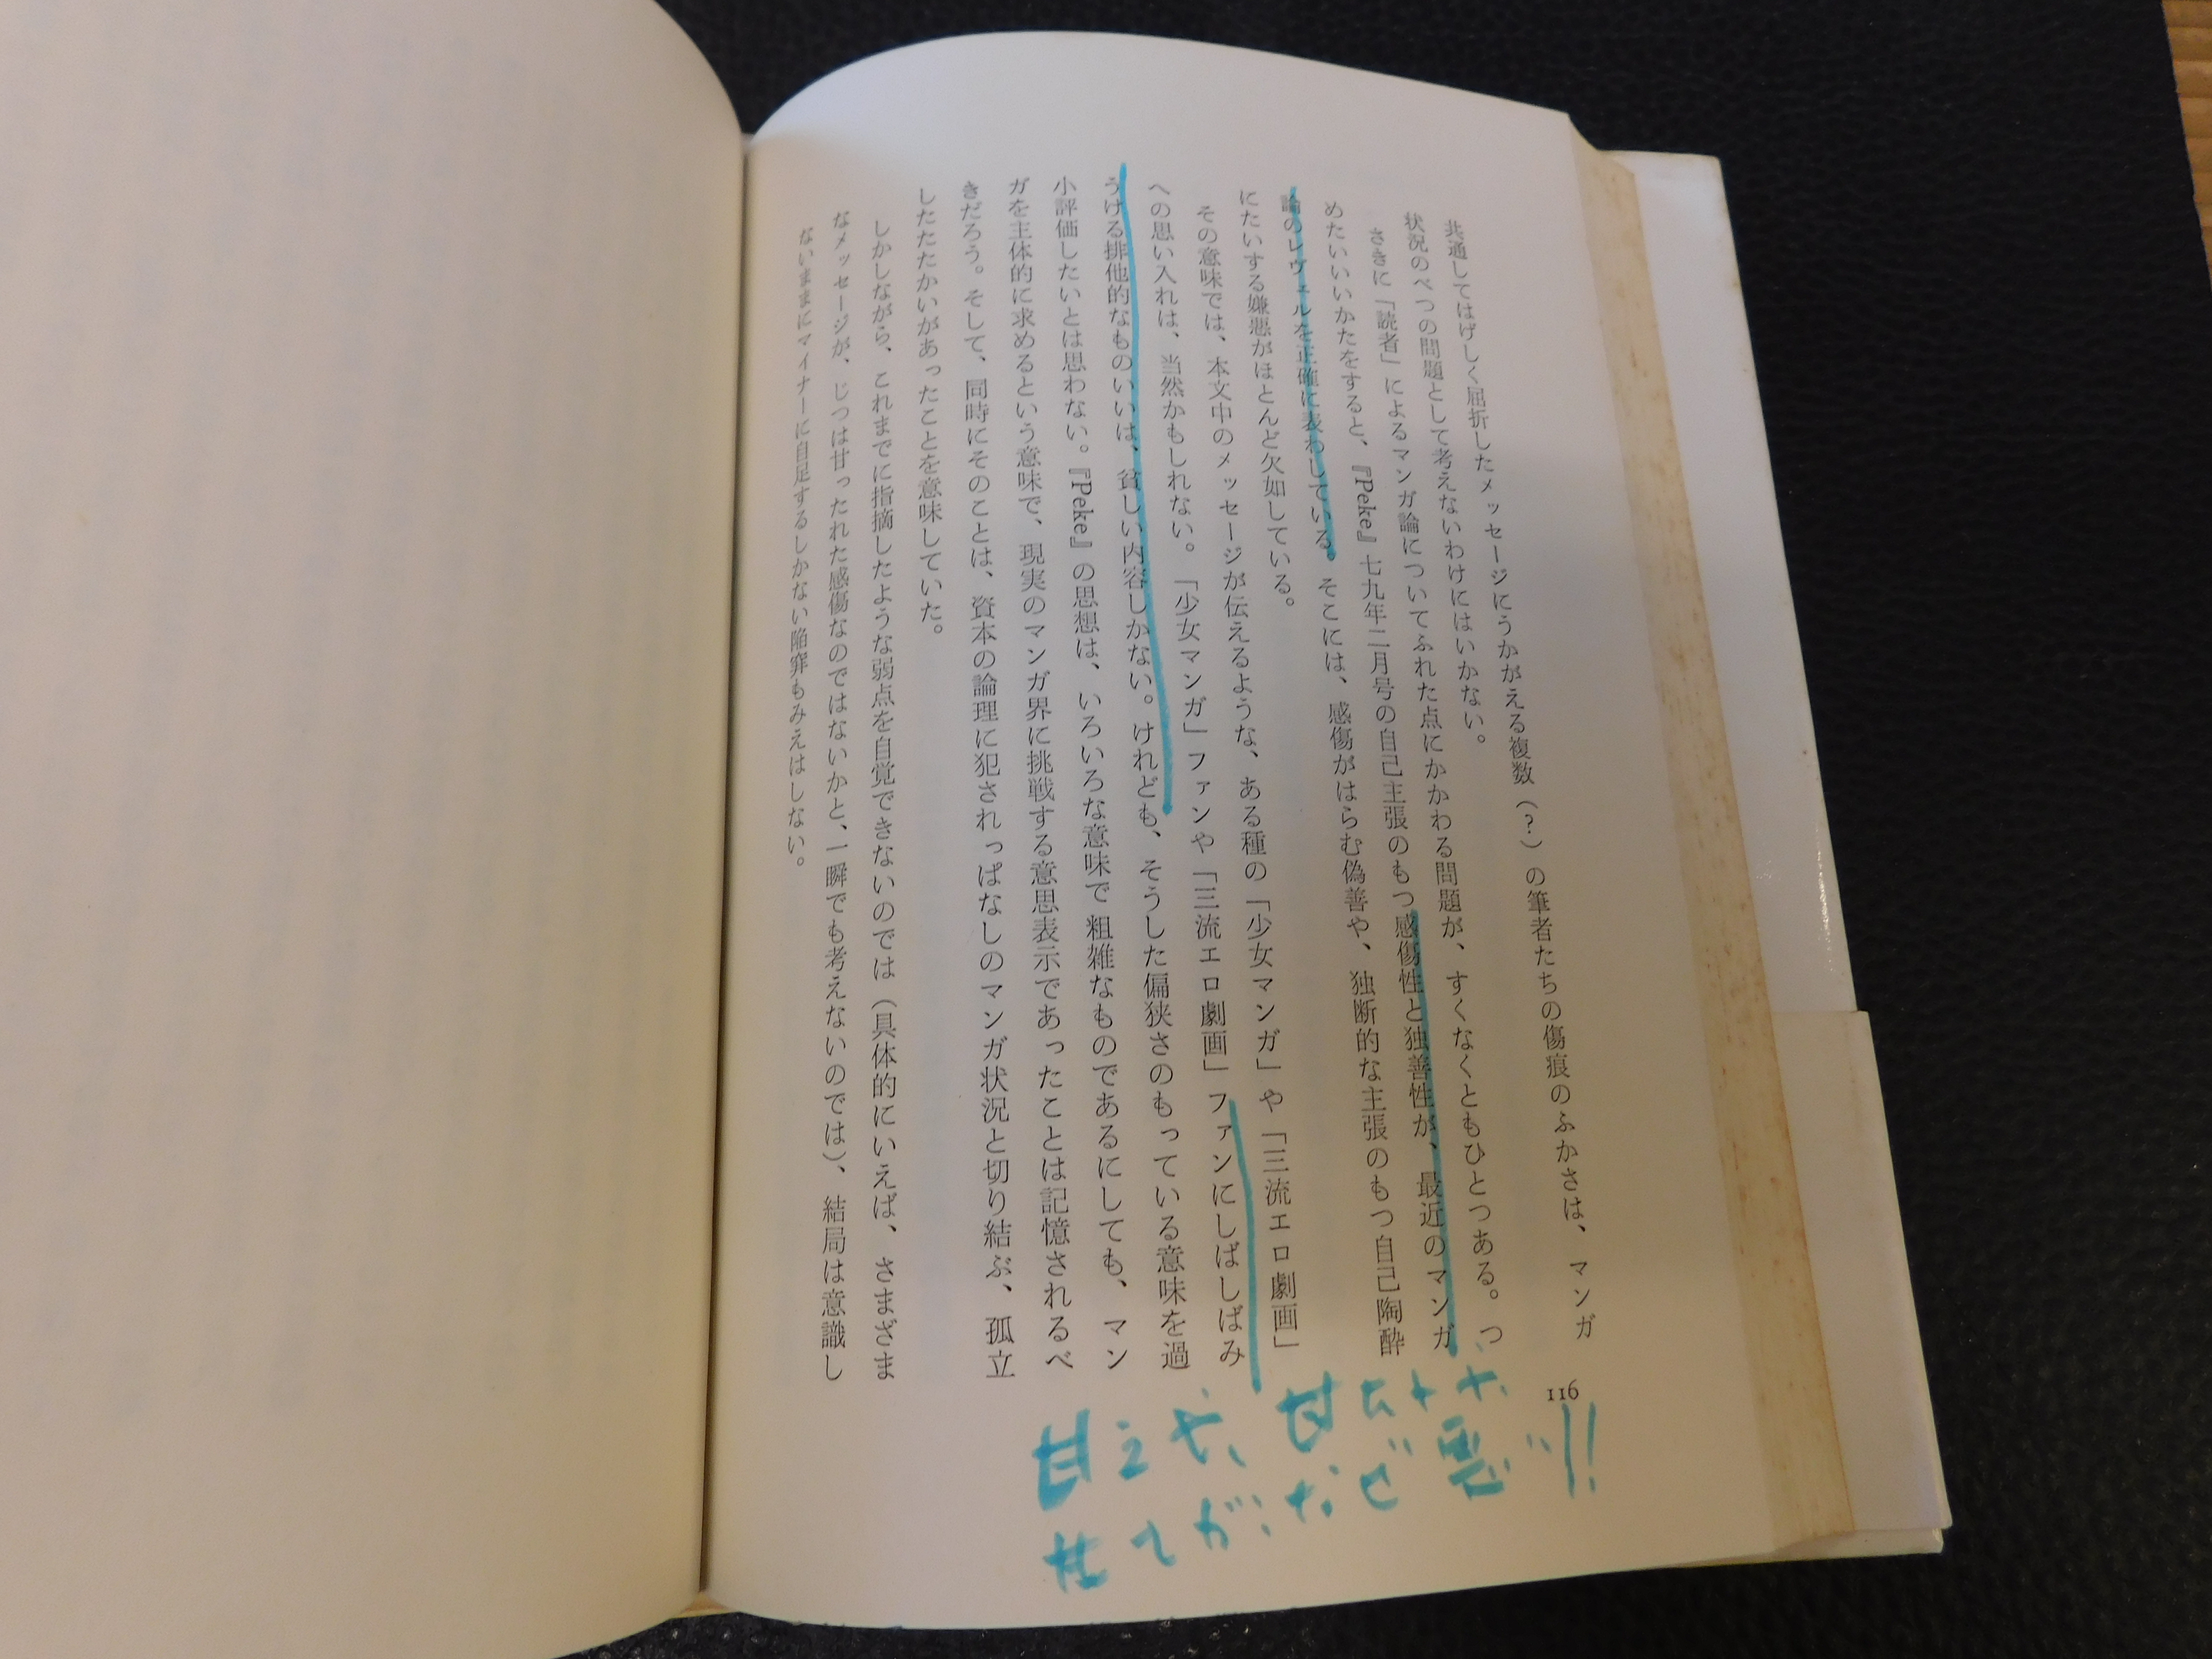 共通してはげしく屈折したメッセージにうかがえる複数(?)の筆者たちの傷痕のふかさは、マンガ
状況のべつの問題として考えないわけにはいかない。
さきに「読者」によるマンガ論についてふれた点にかかわる問題が、すくなくともひとつある。つ
めたいいいかたをすると、『Peke』七九年二月号の自己主張のもつ感傷性と独善性が、最近のマンガ
論のレヴェルを正確に表わしている。そこには、感傷がはらむ偽善や、独断的な主張のもつ自己陶酔
にたいする嫌悪がほとんど欠如している。
その意味では、本文中のメッセージが伝えるような、ある種の「少女マンガ」や「三流エロ劇画」
への思い入れは、当然かもしれない。「少女マンガ」ファンや「三流エロ劇画」ファンにしばしばみ
うける排他的なもののいいは、貧しい内容しかない。けれども、そうした偏狭さのもっている意味を過
小評価したいとは思わない。『Peke』の思想は、いろいろな意味で粗雑なものであるにしても、マン
ガを主体的に求めるという意味で、現実のマンガ界に挑戦する意思表示であったことは記憶されるべ
きだろう。そして、同時にそのことは、資本の論理に犯されっぱなしのマンガ状況と切り結ぶ、孤立
したたたかいがあったことを意味していた。
しかしながら、これまでに指摘したような弱点を自覚できないのでは(具体的にいえば、さまざま
なメッセージが、じつは甘ったれた感傷なのではないかと、一瞬でも考えないのでは)、結局は意識し
ないままにマイナーに自足するしかない陥穽もみえはしない。
116
甘えや、甘
がなぜ悪い!!